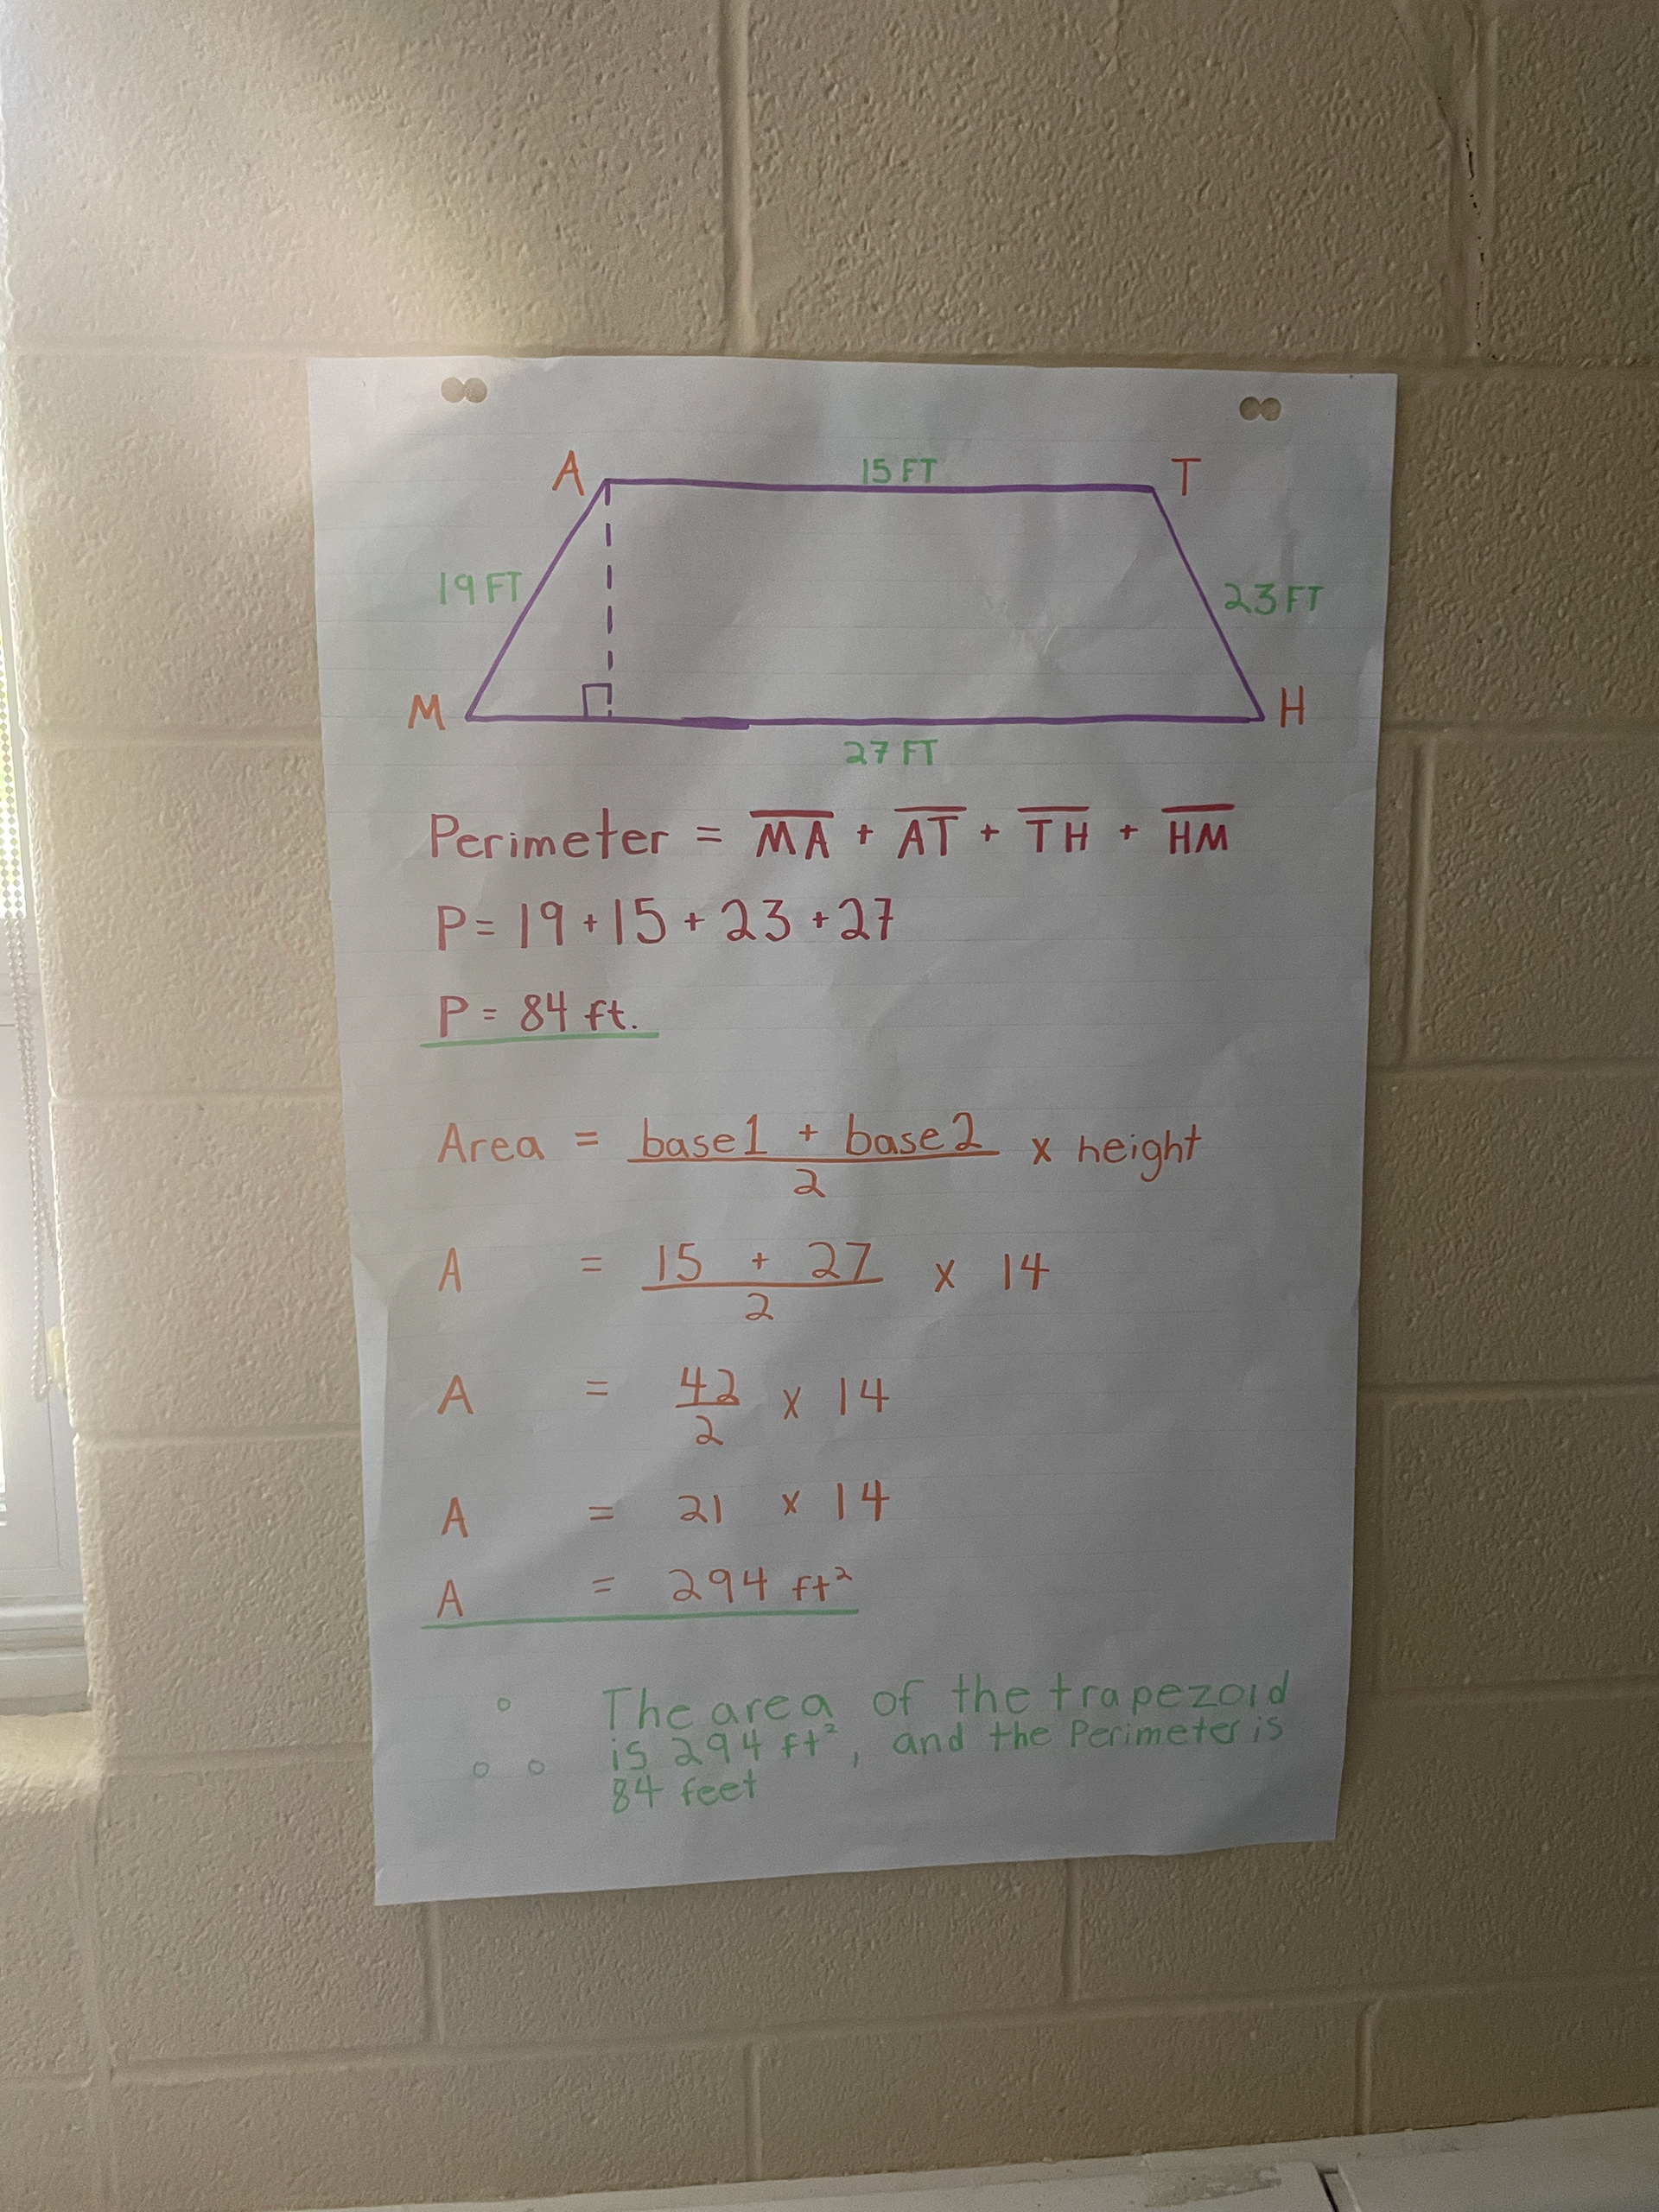 A 15 FT T
19 FT 23 FT
M H
27 FT
Perimeter = M̅A̅ + A̅T̅ + T̅H̅ + H̅M̅
P = 19 + 15 + 23 + 27
P = 84 ft.
Area = base1 + base2 x height
2
A = 15 + 27 x 14
2
A = 42 x 14
2
A = 21 x 14
A = 294 ft²
∴ The area of the trapezoid
is 294 ft², and the Perimeter is
84 feet